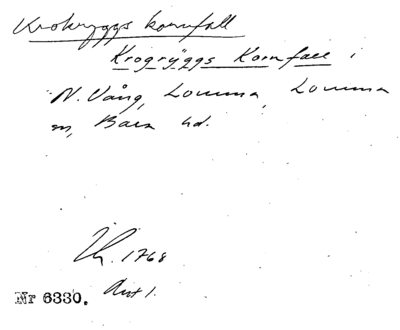 Krokryggs kornfall
Krogrÿggs Kornfall i
N. Vång, Lomma, Lomma
sn, Bara hd.
Ch. 1768
Akt 1.
Nr 6330.